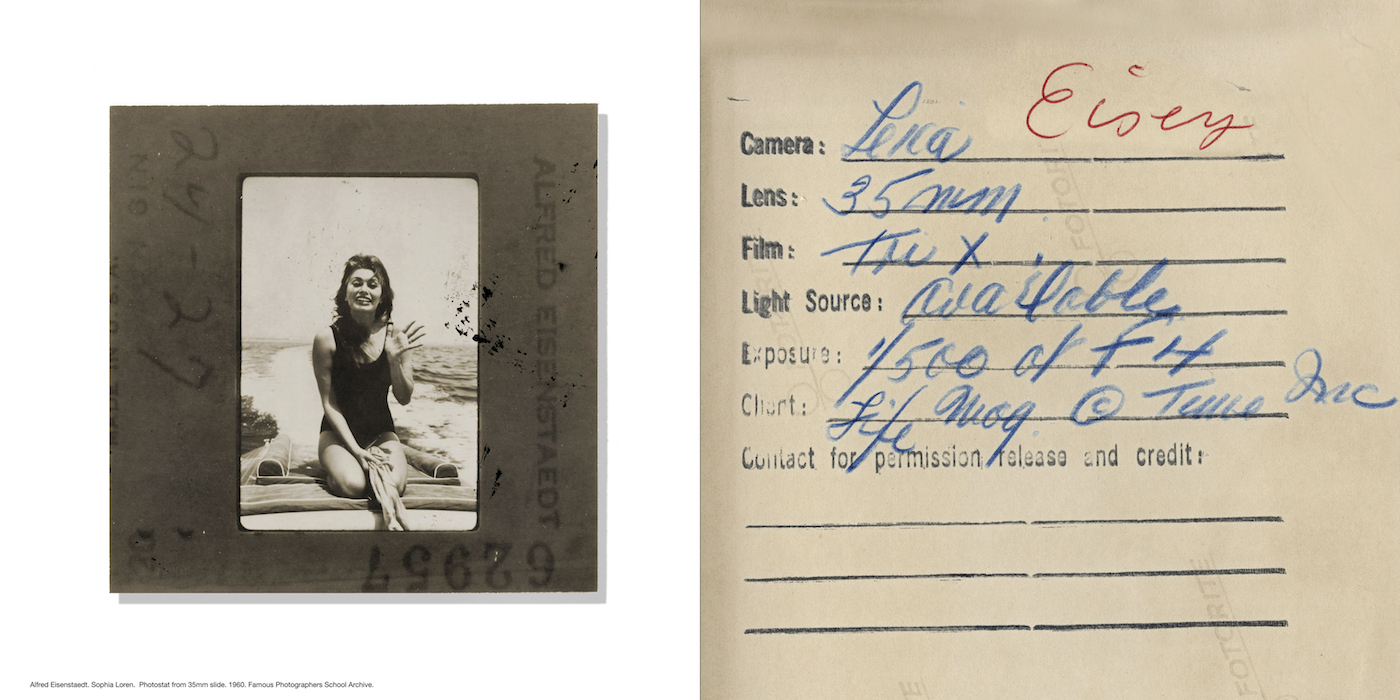 24-27
MADE IN U.S.A.
ALFRED EISENSTAEDT
62957
Alfred Eisenstaedt. Sophia Loren. Photostat from 35mm slide. 1960. Famous Photographers School Archive.
Eisey
Camera: Leica
Lens: 35 mm.
Film: Tri X
Light Source: available
Exposure: 1/500 at F 4
Client: Life Mag. © Time Inc
Contact for permission release and credit:
FOTORITE